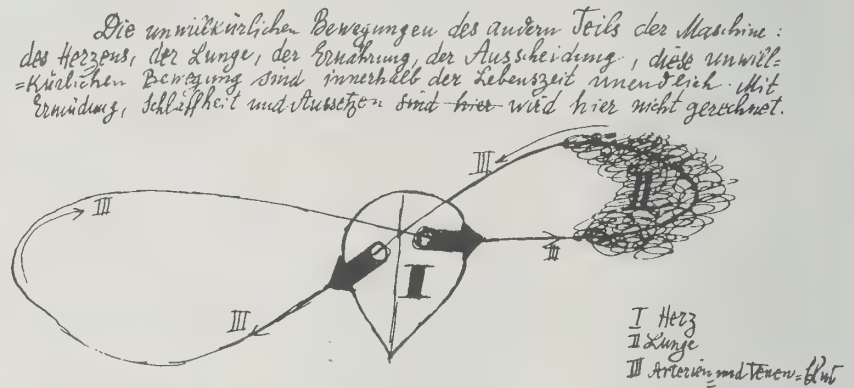 Die unwillkürlichen Bewegungen des andern Teils der Maschine:
des Herzens, der Lunge, der Ernährung, der Ausscheidung, diese unwill=
=kürlichen Bewegung sind innerhalb der Lebenszeit unendlich. Mit
Ermüdung, Schlaffheit und Aussetzen sind hier wird hier nicht gerechnet.
III
II
III
III
I
III
I Herz
II Lunge
III Arterien und Venen=blut